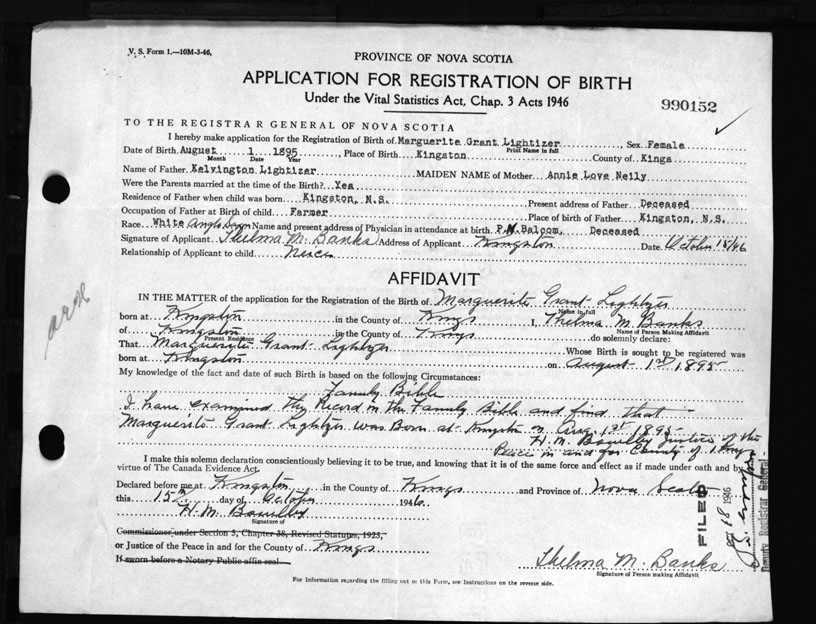 V. S. Form 1.—10M-3-46.
PROVINCE OF NOVA SCOTIA
APPLICATION FOR REGISTRATION OF BIRTH
Under the Vital Statistics Act, Chap. 3 Acts 1946
990152
TO THE REGISTRAR GENERAL OF NOVA SCOTIA
I hereby make application for the Registration of Birth of Marguerite Grant Lightizer Sex Female
Print Name in full
Date of Birth August 1 1895 Place of Birth Kingston County of Kings
Month Date Year
Name of Father Kelvington Lightizer MAIDEN NAME of Mother Annie Love Neily
Were the Parents married at the time of the Birth? Yes
Residence of Father when child was born Kingston, N.S. Present address of Father Deceased
Occupation of Father at Birth of child Farmer Place of birth of Father Kingston, N.S.
Race White Anglo Saxon Name and present address of Physician in attendance at birth P.M. Balcom, Deceased
Signature of Applicant Thelma M. Banks Address of Applicant Kingston Date October 15/46
Relationship of Applicant to child Neice
AFFIDAVIT
IN THE MATTER of the application for the Registration of the Birth of Marguerite Grant Lightizer
Name in full
born at Kingston in the County of Kings I, Thelma M. Banks
Name of Person Making Affidavit
of Kingston in the County of Kings do solemnly declare:
Present Residence
That Marguerite Grant Lightizer Whose Birth is sought to be registered was
born at Kingston on August 1st 1895
My knowledge of the fact and date of such Birth is based on the following Circumstances:
Family Bible
I have examined the Record in the Family Bible and find that
Marguerite Grant Lightizer was Born at Kingston on Aug. 1st 1895
H. M. Bowlby Justice of the
Peace in and for County of Kings
I make this solemn declaration conscientiously believing it to be true, and knowing that it is of the same force and effect as if made under oath and by
virtue of The Canada Evidence Act.
Declared before me at Kingston in the County of Kings and Province of Nova Scotia
this 15th day of October 1946
H. M. Bowlby
Signature of
Commissioner under Section 3, Chapter 38, Revised Statutes, 1923,
or Justice of the Peace in and for the County of Kings
If sworn before a Notary Public affix seal.
Thelma M. Banks
Signature of Person making Affidavit
For Information regarding the filling out of this Form, see Instructions on the reverse side.
FILED
Oct 18 1946
Deputy Registrar General